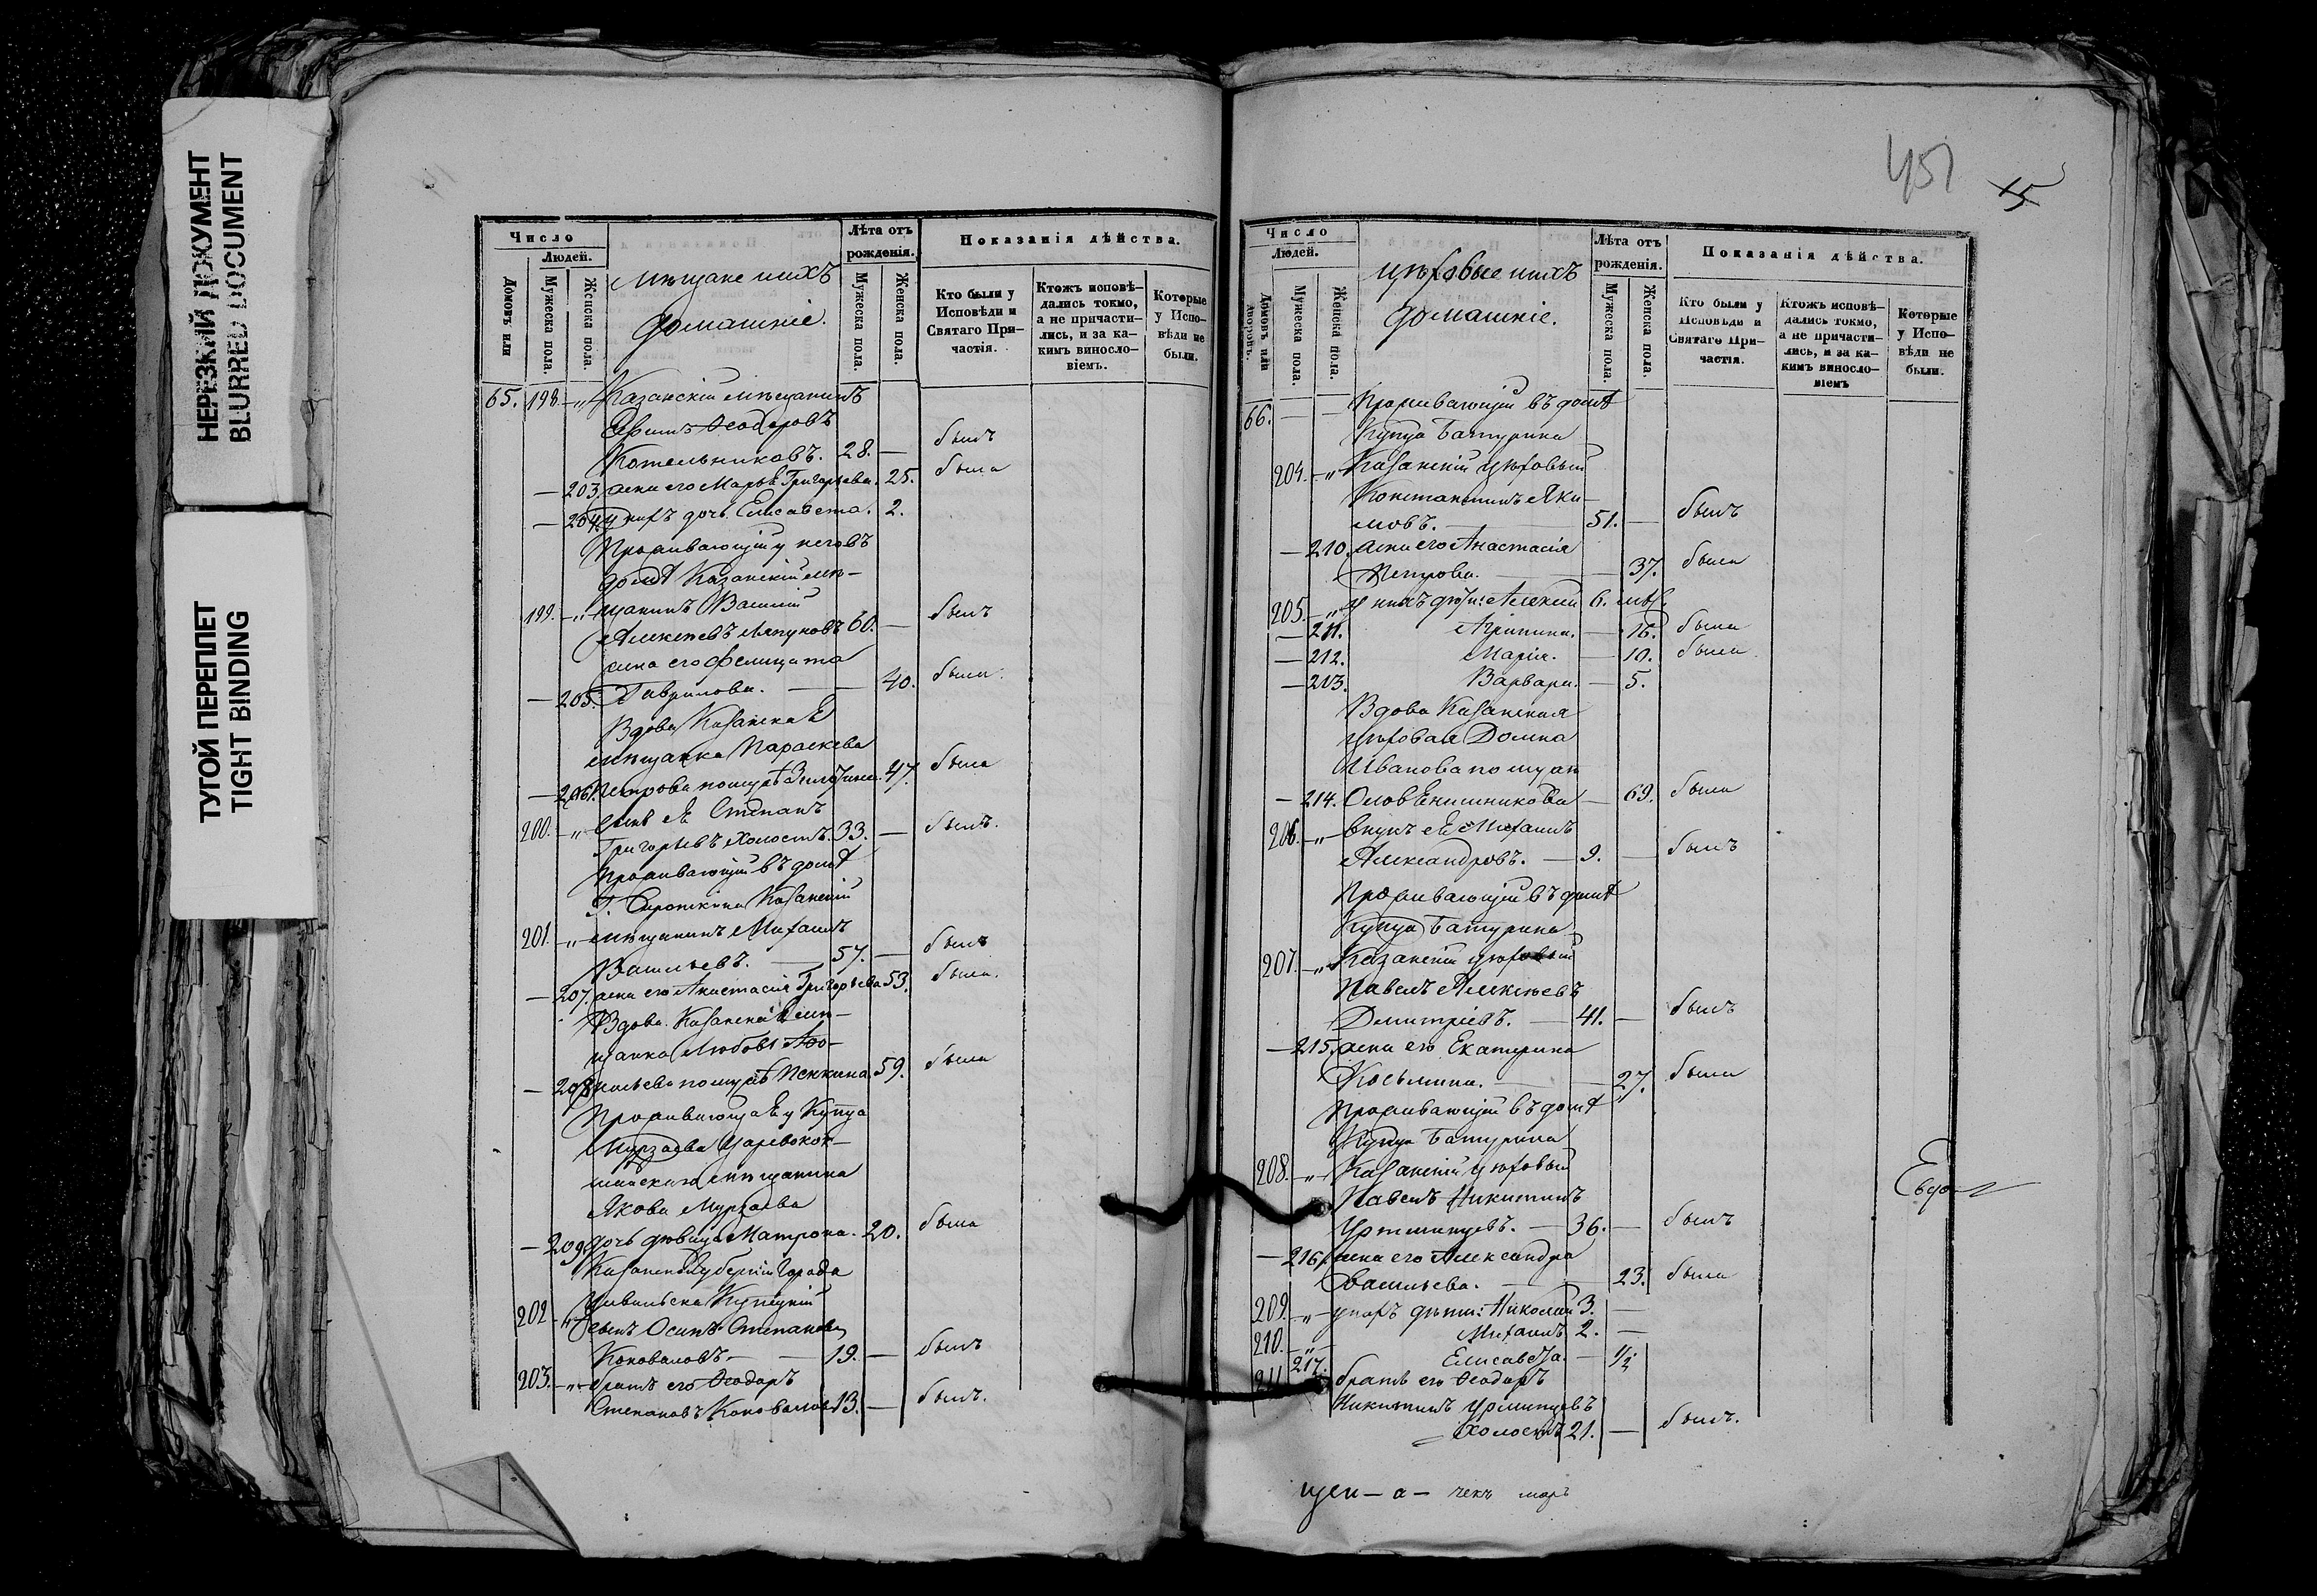 НЕРЕЗКИЙ ДОКУМЕНТ
BLURRED DOCUMENT
ТУГОЙ ПЕРЕПЛЕТ
TIGHT BINDING
Число
Людей.
Домовъ или
Мужеска пола.
Женска пола.
мѣщане ихъ
домашніе.
Лѣта отъ
рожденія.
Мужеска пола.
Женска пола.
Показанія дѣйства.
Кто были у
Исповѣди и
Святаго При-
частія.
Ктожъ исповѣ-
дались токмо,
а не причасти-
лись, и за ка-
кимъ виносло-
віемъ.
Которые
у Испо-
вѣди не
были.
65. 198. „ Казанскій мѣщанинъ
Ефимъ Ѳеодоровъ
Котельниковъ. 28. — былъ
— 203. жена его Марья Григорьева. 25. была
— 204. у нихъ дочь Елисавета. 2.
Проживающій у него въ
домѣ Казанскій мѣ-
199. — „ щанинъ Василій
Алексѣевъ Ляпуновъ 60. — былъ
жена его Фелицата
— 205. Гаврилова. — 40. была.
Вдова Казанская
мѣщанка Параскева
— 206. Петрова по мужѣ 47. была
200. — „ сынъ ея Степанъ
Григорьевъ холостъ. 33. — былъ.
Проживающій въ домѣ
Г. Сироткина Казанскій
201. — „ мѣщанинъ Михаилъ
Васильевъ. — 57. — былъ
— 207. жена его Анастасія Григорьева 53. была.
Вдова Казанская мѣ-
щанка Любовь Аѳо-
— 208. насьева по мужѣ Пенкина. 59. была
Проживающая у Купца
Мурзаева Царевокок-
шайскаго мѣщанина
Якова Мурзаева
— 209. дочь дѣвица Матрона. 20. была
Казанской Губерніи города
202 — „ Цивильска Купецкій
сынъ Осипъ Степановъ
Коноваловъ. — 19. — былъ
203. — „ братъ его Ѳеодоръ
Степановъ Коноваловъ 13. — былъ.
451
15
Число
Людей.
Домовъ или
дворовъ.
Мужеска пола.
Женска пола.
цѣховые ихъ
домашніе.
Лѣта отъ
рожденія.
Мужеска пола.
Женска пола.
Показанія дѣйства.
Кто были у
Исповѣди и
Святаго При-
частія.
Ктожъ исповѣ-
дались токмо,
а не причасти-
лись, и за ка-
кимъ винослo-
віемъ
Которые
у Испо-
вѣди не
были.
66. — — Проживающій въ домѣ
Купца Батурина
204. — „ Казанскій цѣховый
Константинъ Яки-
мовъ. — 51. — былъ
— 210. жена его Анастасія
Петрова. — 37. была
205. — „ У нихъ дѣти: Алексій 6. мѣс.
— 211. Агрипина. — 16. была
— 212. Марія. — 10. была
— 213. Варвара. — 5.
Вдова Казанская
цѣховая Домна
Иванова по мужѣ
— 214. — 69. была
206. — „ внукъ ея Михаилъ
Александровъ. — 9. — былъ
Проживающій въ домѣ
Купца Батурина
207. — „ Казанскій цѣховый
Павелъ Алексѣевъ
Дмитріевъ. — 41. — былъ
— 215. жена его Екатерина
Косьмина. — 27. была
Проживающій въ домѣ
Купца Батурина
208. — „ Казанскій цѣховый
Павелъ Никитинъ
Уртминцевъ. — 36. — былъ
— 216. жена его Александра
Васильева. — 23. была
209. — „ — у нихъ дѣти: Николай 3. —
210. — „ — Михаилъ 2. —
217. Елисавета. — 1/2
211 братъ его Ѳеодоръ
Никитинъ Урминцевъ
холостъ 21. — былъ.
Евдо